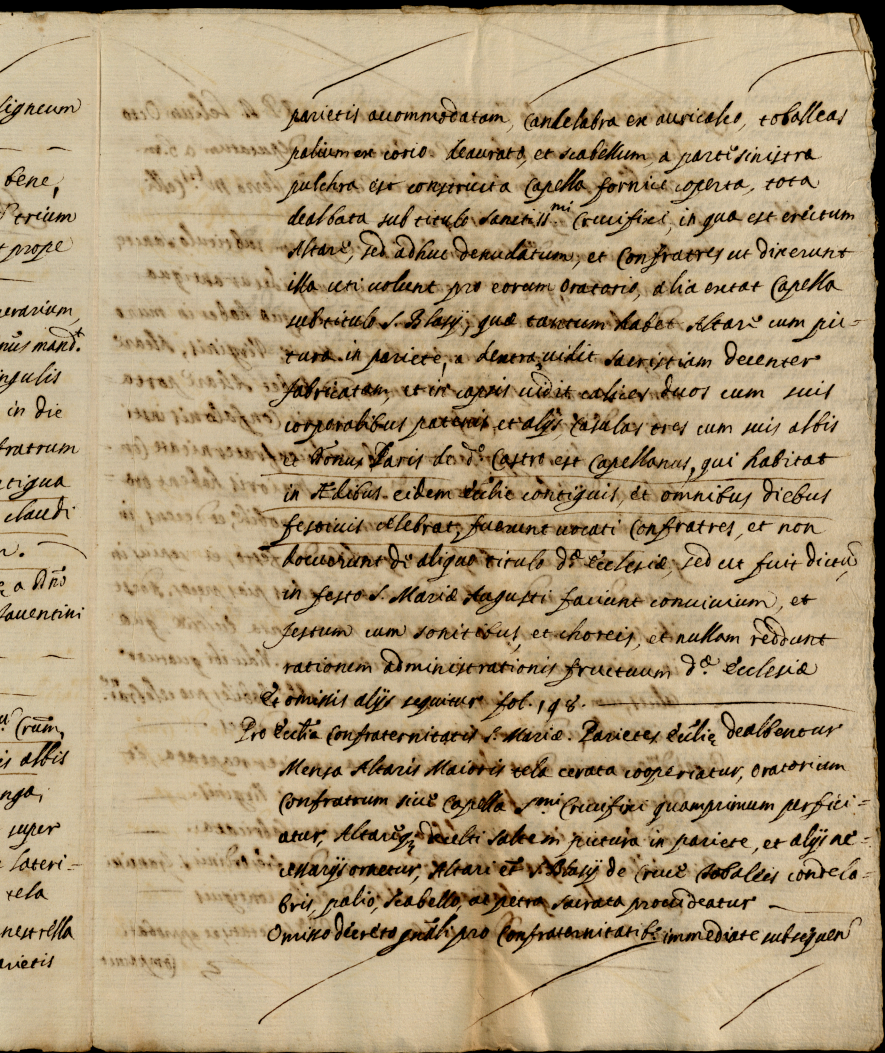 ligneum
bene,
trium
prope
nerarium,
nus mand.t
ingulis
in die
fratrum
ntigua
claudi
a Dño
Crum,
is albis
nga,
super
lateri-
tela
nestrella
arietis
parietis accommodatam, candelabra ex auricalco, toballeas
palium ex corio deaurato, et scabellum, a parte sinistra
pulchra est constructa Capella fornice coperta, tota
dealbata sub titulo Sanctiss.mi Crucifixi, in qua est erectum
Altare, sed adhuc denudatum, et Confratres ut dixerunt
illa uti volunt pro eorum oratorio, alia extat Capella
sub titulo S. Blasij, quæ tantum habet Altare cum pic-
tura in pariete, a dextra vidit sacristiam decenter
fabricatam, et in capsis vidit calices duos cum suis
corporalibus patenis, et alijs casulas tres cum suis albis
et Donus Paris de d.o Castro est Capellanus, qui habitat
in Ædibus eidem Ecclie contiguis, et omnibus diebus
festivis celebrat, fuerunt vocati Confratres, et non
docuerunt de aliquo titulo d.æ Ecclesiæ, sed ut fuit dictu
in festo S. Mariæ Augusti faciunt convivium, et
festum cum sonitibus, et choreis, et nullam reddunt
rationem administrationis fructuum d.æ Ecclesiæ
Et omissis alijs sequitur fol. 198.
Pro Ecclia Confraternitatis S. Mariæ. Parietes Eccliæ dealbentur
Mensa Altaris Maioris tela cerata cooperiatur, oratorium
Confratrum sive Capella S.mi Crucifixi quamprimum perfici-
atur, Altareq; decenti saltem pictura in pariete, et alijs ne-
cessarijs ornetur, Altari et S. Blasij de Cruce tobaleis condela-
bris, palio, scabello, ac petra sacrata provideatur
Omisso decreto gñali pro Confraternitatib.s immediate subsequen